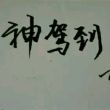 神驾到